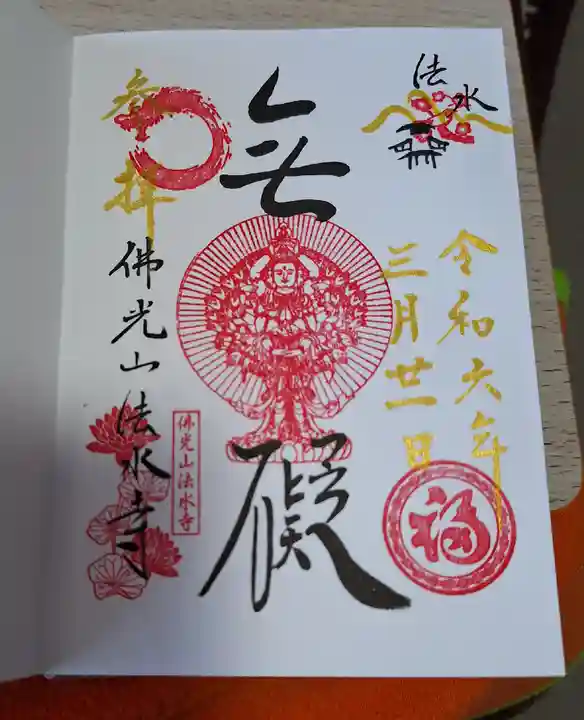 法水
令和六年
三月廿一日
無礙
福
参拝
佛光山法水寺
佛光山法水寺